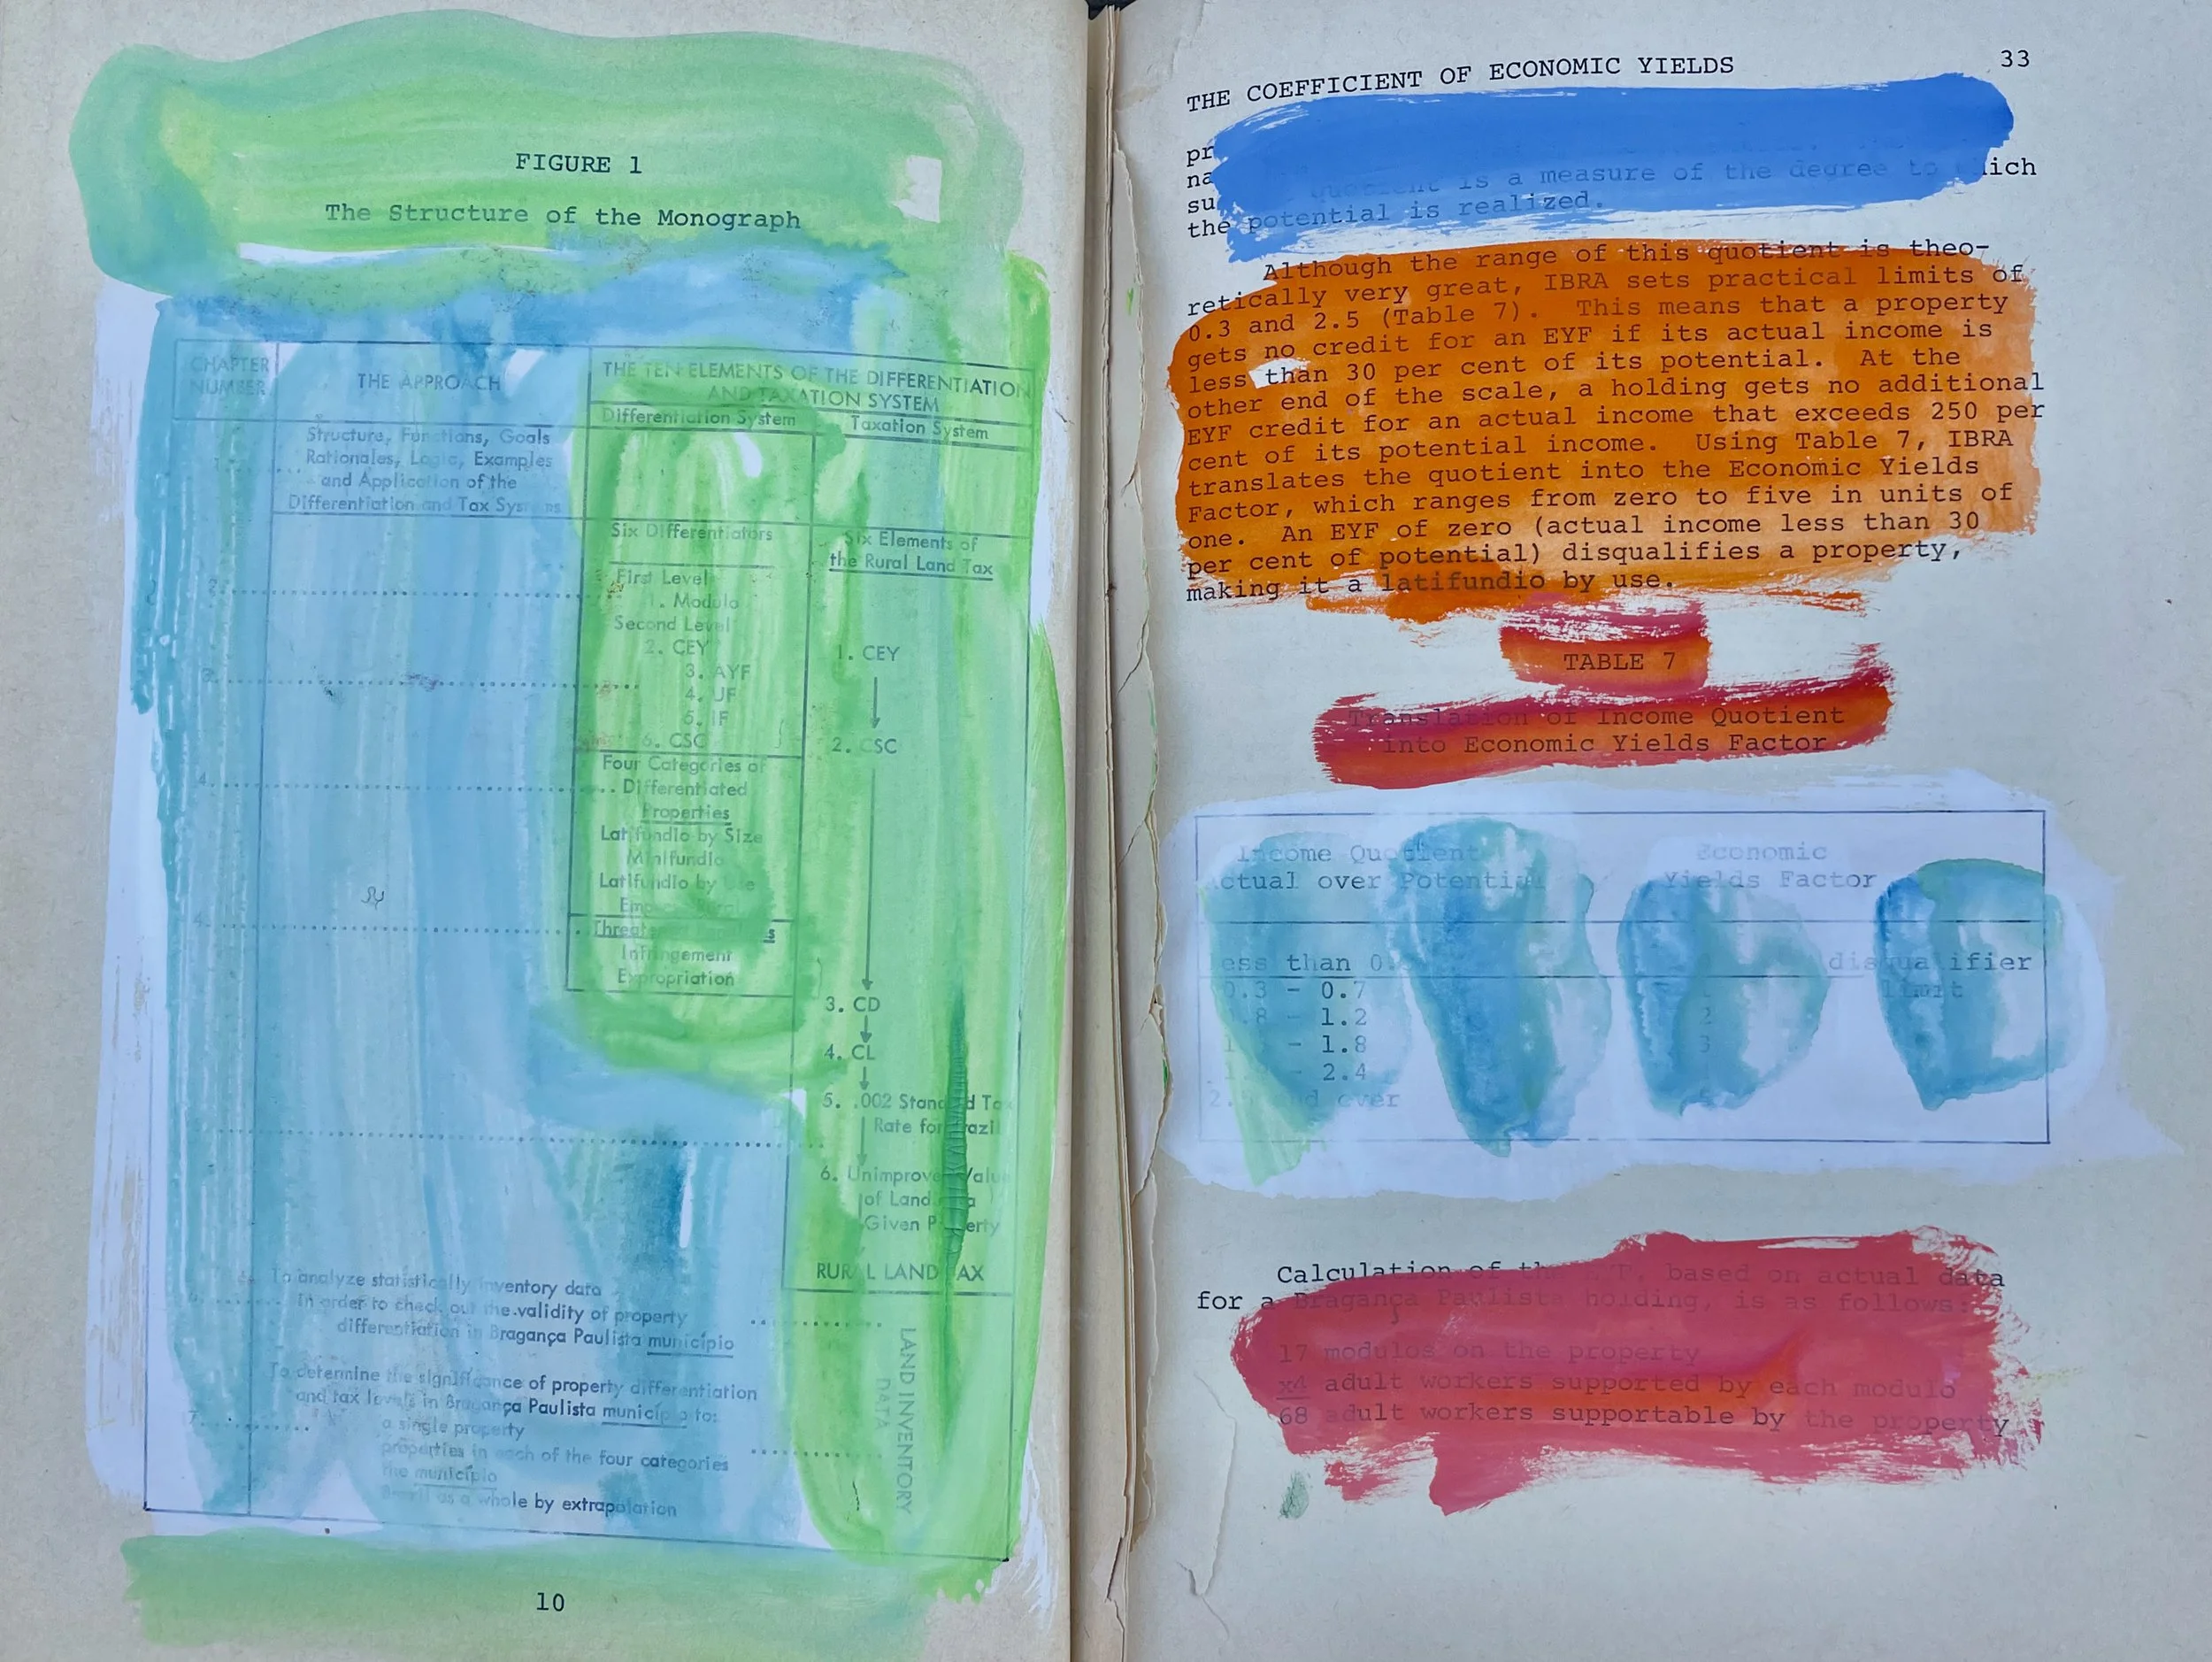 FIGURE 1
The Structure of the Monograph
CHAPTER
NUMBER
THE APPROACH
THE TEN ELEMENTS OF THE DIFFERENTIATION
AND TAXATION SYSTEM
Differentiation System
Taxation System
1
Structure, Functions, Goals
Rationales, Logic, Examples
and Application of the
Differentiation and Tax Systems
Six Differentiators
Six Elements of
the Rural Land Tax
2
First Level
1. Modulo
Second Level
2. CEY
3. AYF
4. UF
5. IF
6. CSC
1. CEY
2. CSC
3
4
Four Categories of
Differentiated
Properties
Latifundio by Size
Minifundio
Latifundio by Use
4
Infringement
Expropriation
3. CD
4. CL
5. .002 Standard Tax
Rate for Brazil
6. Unimproved Value
of Land
Given Property
RURAL LAND TAX
To analyze statistically inventory data
in order to check out the validity of property
differentiation in Bragança Paulista município
7
To determine the significance of property differentiation
and tax levels in Bragança Paulista município to:
a single property
properties in each of the four categories
the município
Brazil as a whole by extrapolation
LAND INVENTORY
DATA
10
THE COEFFICIENT OF ECONOMIC YIELDS 33
pr
na
su quotient is a measure of the degree to which
the potential is realized.
Although the range of this quotient is theo-
retically very great, IBRA sets practical limits of
0.3 and 2.5 (Table 7). This means that a property
gets no credit for an EYF if its actual income is
less than 30 per cent of its potential. At the
other end of the scale, a holding gets no additional
EYF credit for an actual income that exceeds 250 per
cent of its potential income. Using Table 7, IBRA
translates the quotient into the Economic Yields
Factor, which ranges from zero to five in units of
one. An EYF of zero (actual income less than 30
per cent of potential) disqualifies a property,
making it a latifundio by use.
TABLE 7
Translation of Income Quotient
into Economic Yields Factor
Income Quotient
Actual over Potential
Economic
Yields Factor
less than 0. disqualifier
0.3 - 0.7 limit
.8 - 1.2 2
1. - 1.8 3
- 2.4
and over
Calculation of the EYF, based on actual data
for a Bragança Paulista holding, is as follows:
17 modulos on the property
x4 adult workers supported by each modulo
68 adult workers supportable by the property